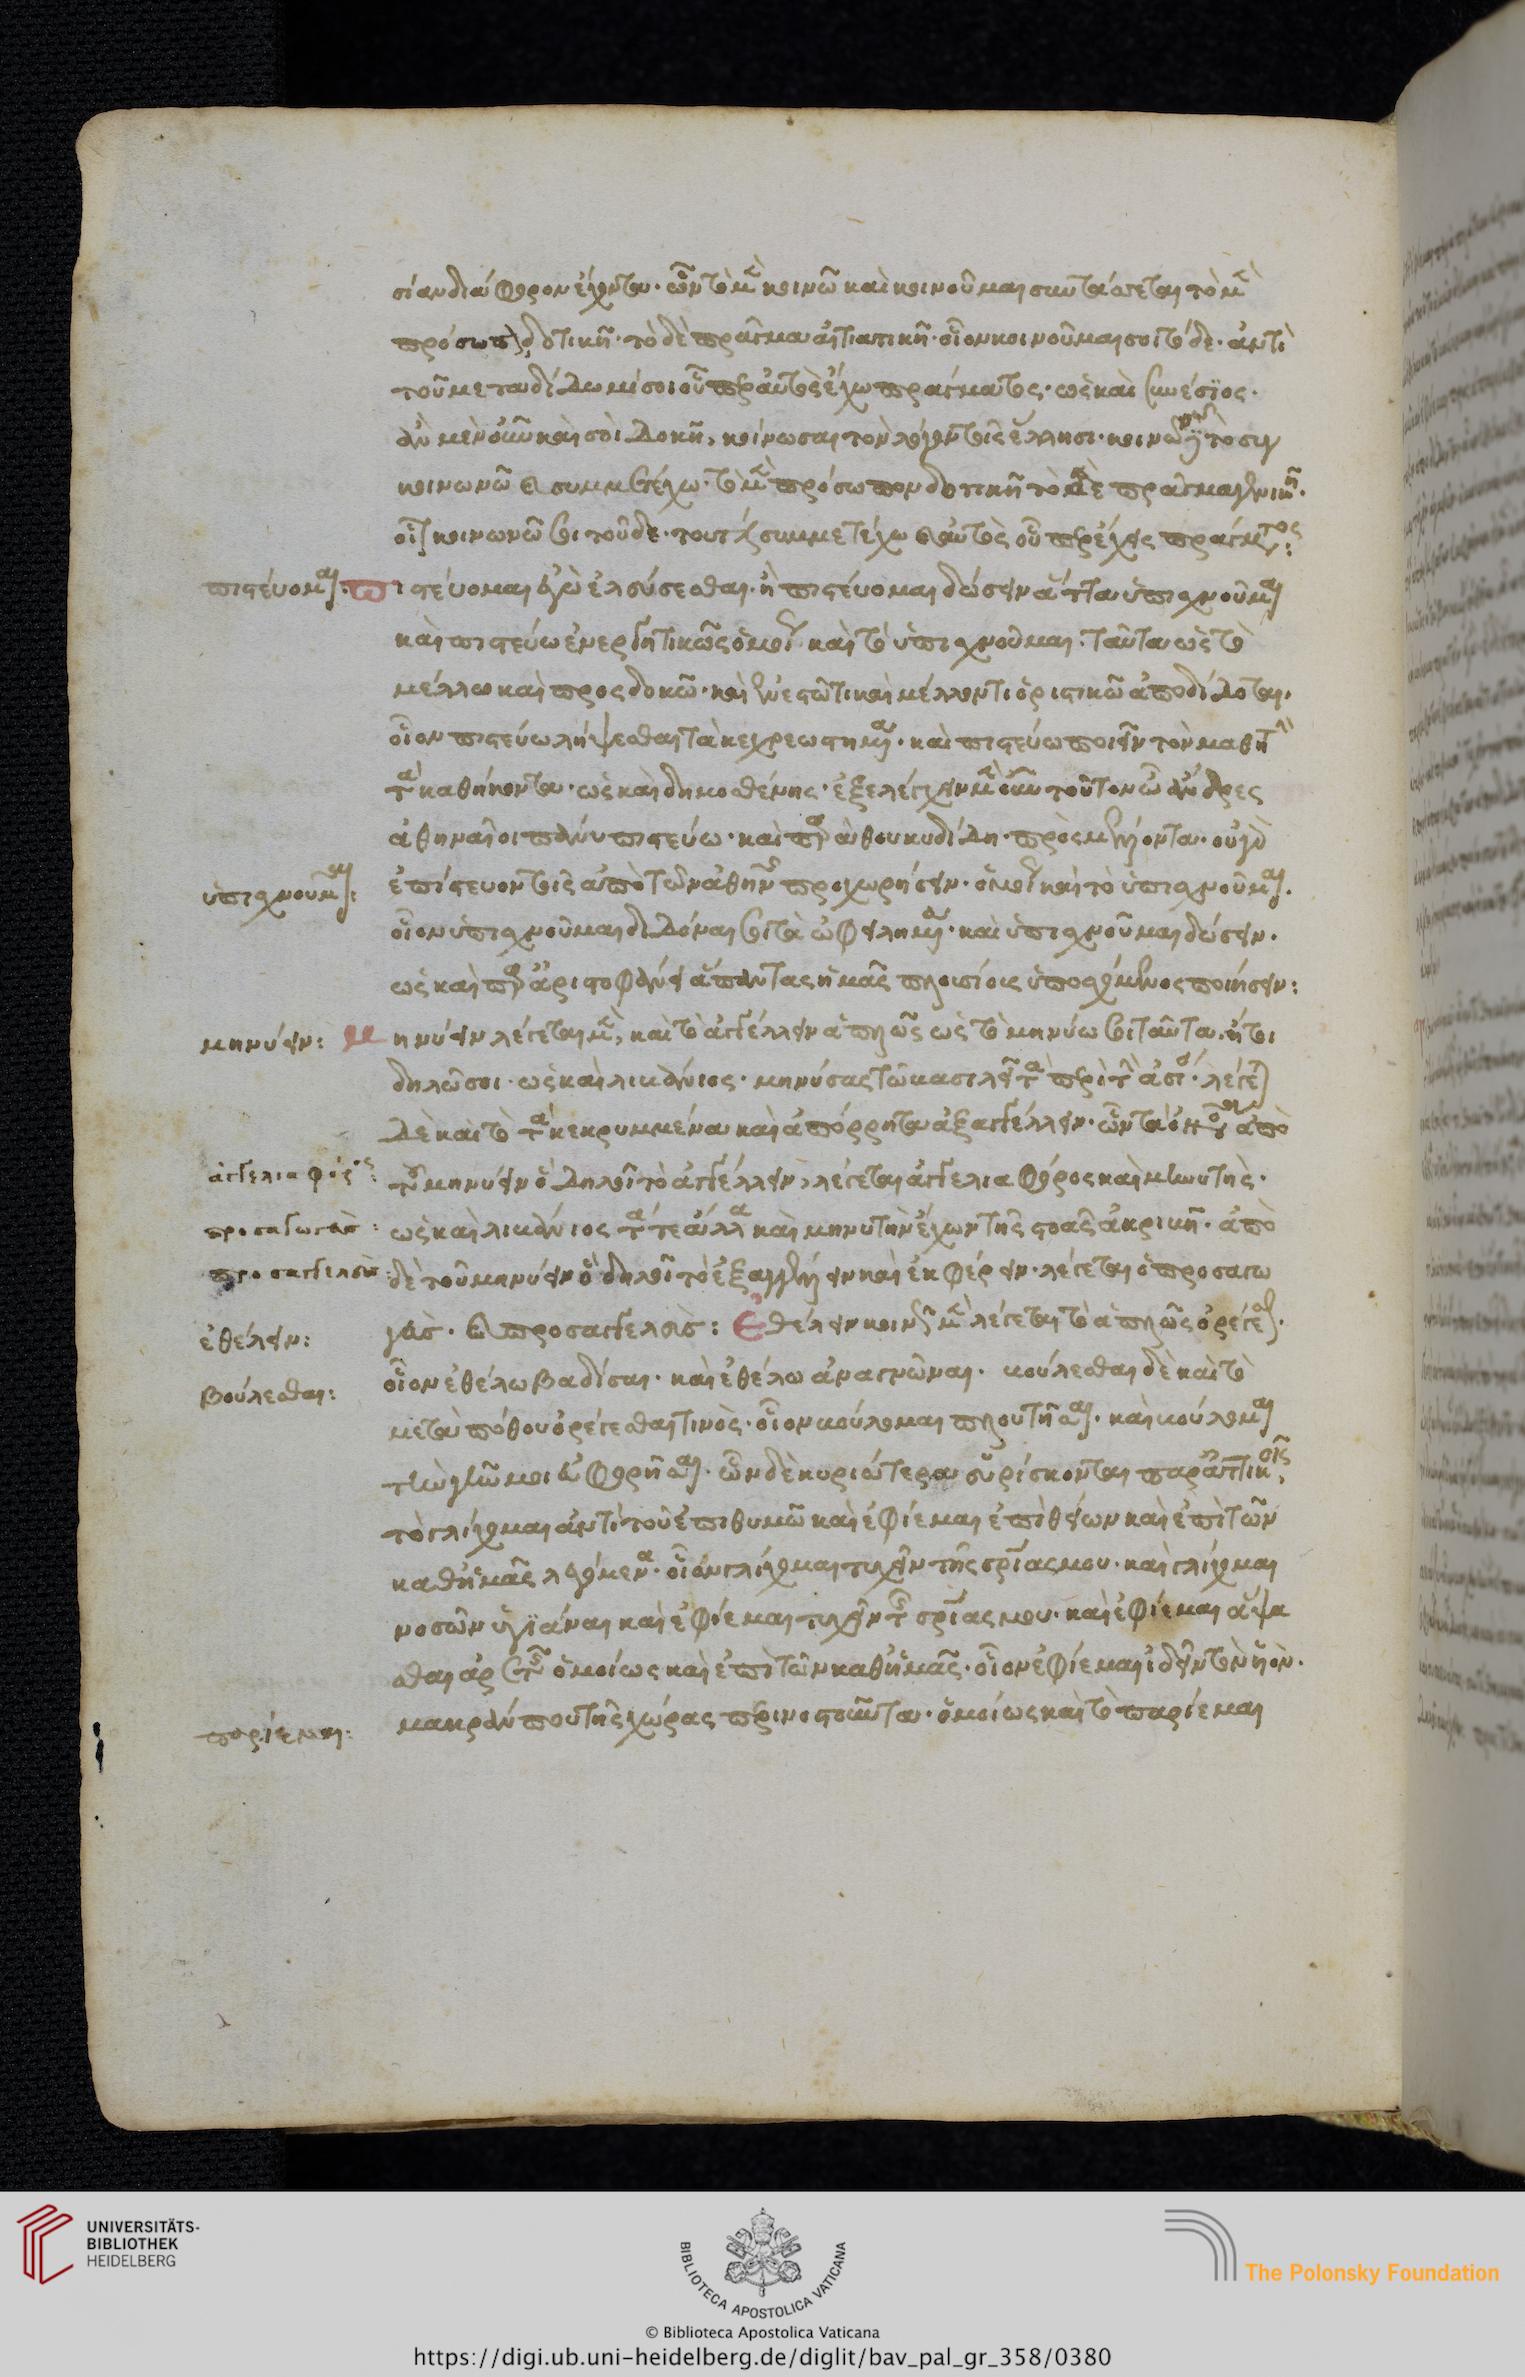 σίαν διάφορον ἔχοντα. ὧν τὸ μὲν κοινῶ καὶ κοινοῦμαι συντάσσεται τὸ μὲν
πρόσωπον δοτικῇ. τὸ δὲ πρᾶγμα αἰτιατικῇ. οἷον κοινοῦμαι σοι τόδε. ἀντὶ
τοῦ μεταδίδωμί σοι οὗπερ αὐτὸς ἔχω πράγματος. ὡς καὶ συνέσιος.
ἂν μὲν οὖν καὶ σοὶ δοκῇ, κοίνωσαι τὸν λόγον τοῖς ἕλλησι. τὸ
κοινωνῶ καὶ συμμετέχω. τὸ μὲν πρόσωπον δοτικῇ τὸ δὲ πρᾶγμα γενικῇ.
οἷον κοινωνῶ σοι τοῦδε. τουτέστι συμμετέχω καὶ αὐτὸς οὗπερ ἔχεις πράγματος:
πιστεύομαι. πιστεύομαι ἐγὼ ἐλεύσεσθαι. ἢ πιστεύομαι δώσειν ἅττα ὑπισχνοῦμαι
καὶ πιστεύω ἐνεργητικῶς ὁμοῦ καὶ τὸ ὑπισχνοῦμαι. ταῦτα ὡς τὸ
μέλλω καὶ προσδοκῶ. καὶ ἐνεστῶτι καὶ μέλλοντι ὁριστικῶ ἀποδίδοται.
οἷον πιστεύω λήψεσθαι τὰ κεχρεωστημένα. καὶ πιστεύω ποιεῖν τὸν μαθητὴν
τὰ καθήκοντα. ὡς καὶ δημοσθένης. ἐξελέγχειν μὲν οὖν τοῦτον ὦ ἄνδρες
ἀθηναῖοι πάνυ πιστεύω. καὶ παρὰ θουκυδίδῃ. πρὸς
ὑπισχνοῦμαι: ἐπίστευον τοῖς ἀπὸ τῶν ἀθηνῶν προχωρήσειν. ὁμοῦ καὶ τὸ ὑπισχνοῦμαι.
οἷον ὑπισχνοῦμαι διδόναι σοι τὰ ὠφειλημένα. καὶ ὑπισχνοῦμαι δώσειν.
ὡς καὶ παρὰ ἀριστοφάνει ἅπαντας ἡμᾶς πλουσίους ὑποσχόμενος ποιήσειν:
μηνύειν: μηνύειν λέγεται μὲν, καὶ τὸ ἀγγέλλειν ἁπλῶς ὡς τὸ μηνύω σοι ταῦτα. ἤτοι
δηλῶ σοι. ὡς καὶ λιβάνιος. μηνύσας τῶ βασιλεῖ τὰ περὶ λέγεται
δὲ καὶ τὸ τὰ κεκρυμμένα καὶ ἀπόρρητα ἐξαγγέλλειν. ἀπὸ
ἀγγελιαφόρος: τοῦ μηνύειν ὃ δηλοῖ τὸ ἀγγέλλειν, λέγεται ἀγγελιαφόρος καὶ μηνυτής.
προσαγωγεύς: ὡς καὶ λιβάνιος τά τε ἄλλα καὶ μηνυτὴν ἔχων τῆς στοᾶς ἀπὸ
προσαγγελεύς: δὲ τοῦ μηνύειν ὃ δηλοῖ τὸ ἐξαγγέλλειν καὶ ἐκφέρειν. λέγεται ὁ προσαγω
ἐθέλειν: γεύς. καὶ προσαγγελεύς: ἐθέλειν κοινῶς μὲν λέγεται τὸ ἁπλῶς ὀρέγεσθαι.
οἷον ἐθέλω βαδίσαι. καὶ ἐθέλω ἀναγνῶναι. βούλεσθαι δὲ καὶ τὸ
βούλεσθαι: μετὰ πόθου ὀρέγεσθαι τινός. οἷον βούλομαι πλουτῆσαι. καὶ βούλομαι
ὧν δὲ κυριώτερα εὑρίσκονται παρ' ἀττικοῖς
τὸ γλίχομαι ἀντὶ τοῦ ἐπιθυμῶ καὶ ἐφίεμαι ἐπὶ θείων καὶ ἐπὶ τῶν
καθ' ἡμᾶς λεγόμενα. οἷον γλίχομαι τυχεῖν τῆς σωτηρίας μου. καὶ γλίχομαι
νοσῶν ὑγιᾶναι καὶ ἐφίεμαι τυχεῖν τῆς σωτηρίας μου. καὶ ἐφίεμαι ἅψα
σθαι ἀρετῆς ὁμοίως καὶ ἐπὶ τῶν καθ' ἡμᾶς. οἷον ἐφίεμαι ἰδεῖν τὸν υἱόν.
παρίεμαι: μακράν που τῆς χώρας περινοστοῦντα. ὁμοίως καὶ τὸ παρίεμαι
UNIVERSITÄTS-
BIBLIOTHEK
HEIDELBERG
BIBLIOTECA APOSTOLICA VATICANA
The Polonsky Foundation
© Biblioteca Apostolica Vaticana
https://digi.ub.uni-heidelberg.de/diglit/bav_pal_gr_358/0380